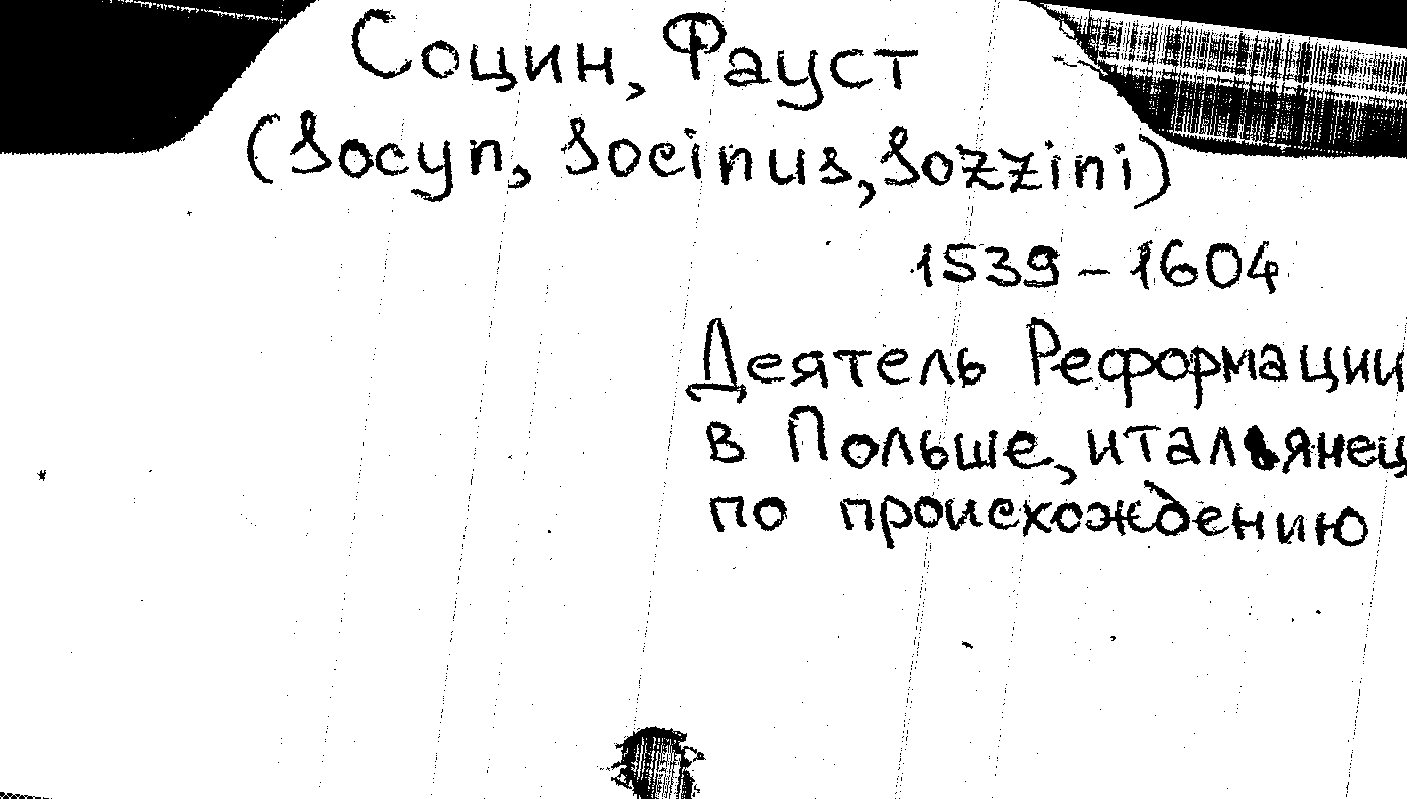 Социн, Фауст
(Socyn, Socinus, Sozzini)
1539 – 1604
Деятель Реформации
в Польше, итальянец
по происхождению